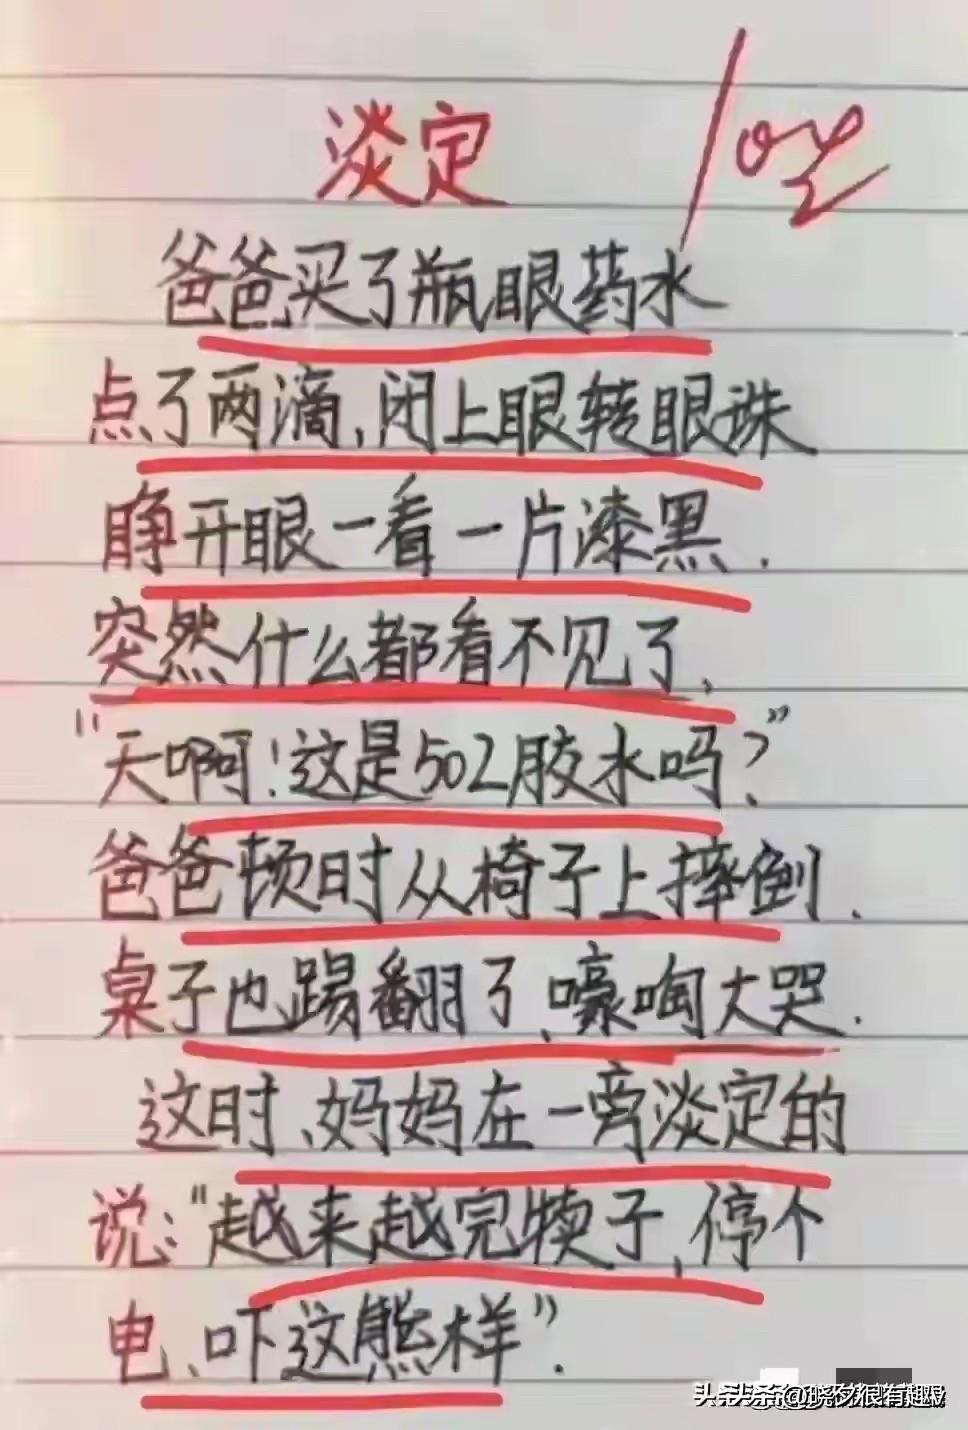 淡定
爸爸买了瓶眼药水
点了两滴,闭上眼转眼珠
睁开眼一看一片漆黑.
突然什么都看不见了,
"天啊!这是502胶水吗?"
爸爸顿时从椅子上摔倒.
桌子也踢翻了,嚎啕大哭.
这时、妈妈在一旁淡定的
说:"越来越完犊子,停个
电、吓这熊样".
头条 @晓艾很有趣